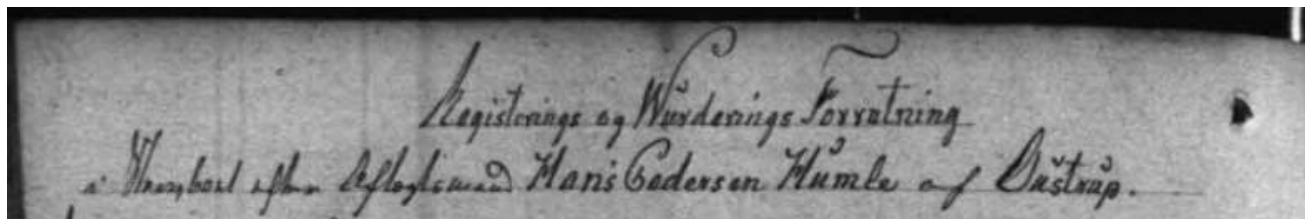 Registerings og Wurderings Forretning
i Sterboet efter Aftegtsmand Hans Pedersen Humle af Dustrup.